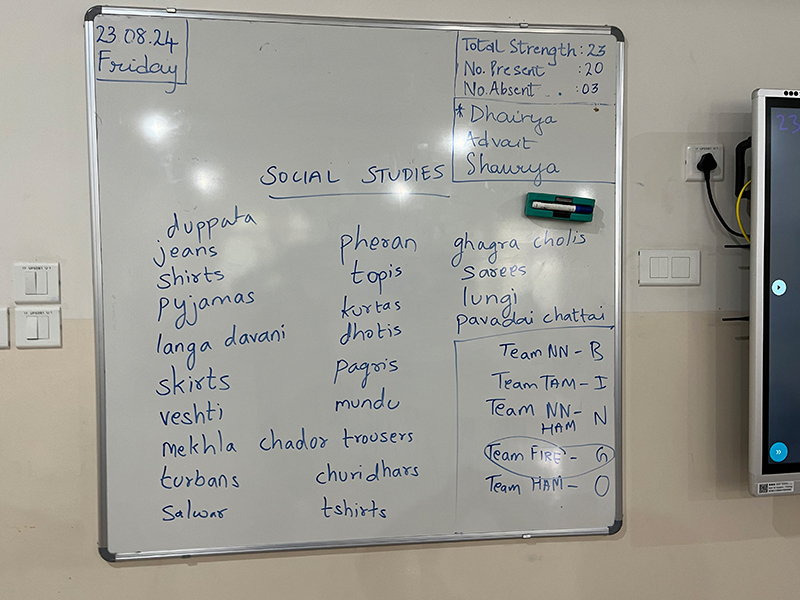 23.08.24
Friday
Total Strength: 23
No. Present : 20
No. Absent . : 03
* Dhairya
Advait
Shaurya
SOCIAL STUDIES
duppata
jeans
shirts
pyjamas
langa davani
skirts
veshti
mekhla chador
turbans
salwar
pheran
topis
kurtas
dhotis
pagris
mundu
trousers
churidhars
tshirts
ghagra cholis
sarees
lungi
pavadai chattai
Team NN - B
Team TAM - I
Team NN - HAM N
Team FIRE - G
Team HAM - O
23